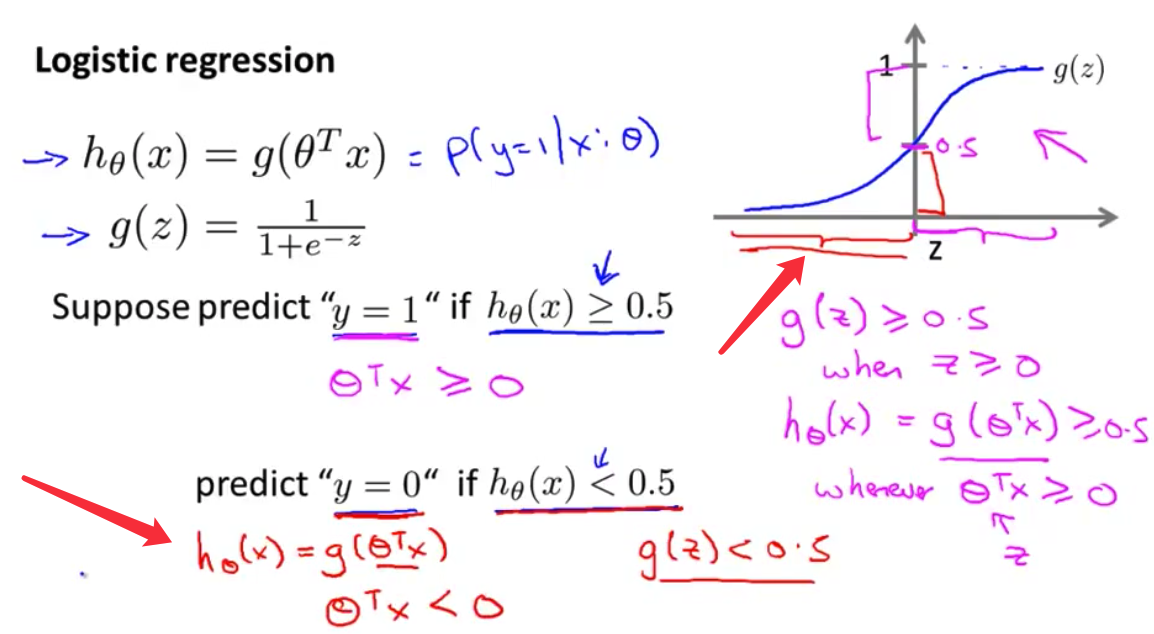 Logistic regression
→ hθ(x) = g(θᵀx) = p(y=1|x;θ)
→ g(z) = 1/(1+e⁻ᶻ)
Suppose predict “y = 1“ if hθ(x) ≥ 0.5
θᵀx ≥ 0
predict “y = 0“ if hθ(x) < 0.5
hθ(x) = g(θᵀx)
θᵀx < 0
g(z) < 0.5
1
g(z)
0.5
z
g(z) ≥ 0.5
when z ≥ 0
hθ(x) = g(θᵀx) ≥ 0.5
whenever θᵀx ≥ 0
z